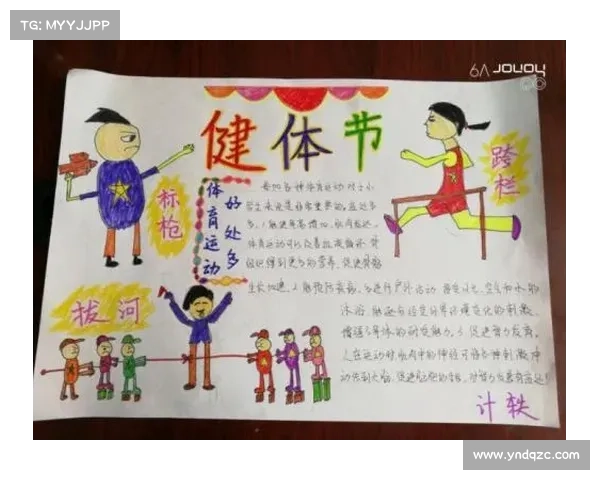 TG: MYYJJPP
健体节
标枪
跨栏
体育运动
好处多
参加各种体育运动对于小
学生来说是非常重要的。益处多
多,1.能使身高增加、肌肉发达。
体育运动可以改善血液循环,骨
组织得到更多的营养,促进骨骼
生长加速。2.能预防疾病。多进行户外活动,接受日光、空气和水的
沐浴,能适应经受外界环境变化的刺激,
增强身体的能力。3.促进智力发育。
人在运动时,肌肉中的神经可将各种刺激冲
动传到大脑,促进脑细胞的发育,对智力发展有益处!
拔河
计轶
www.yndqzc.com